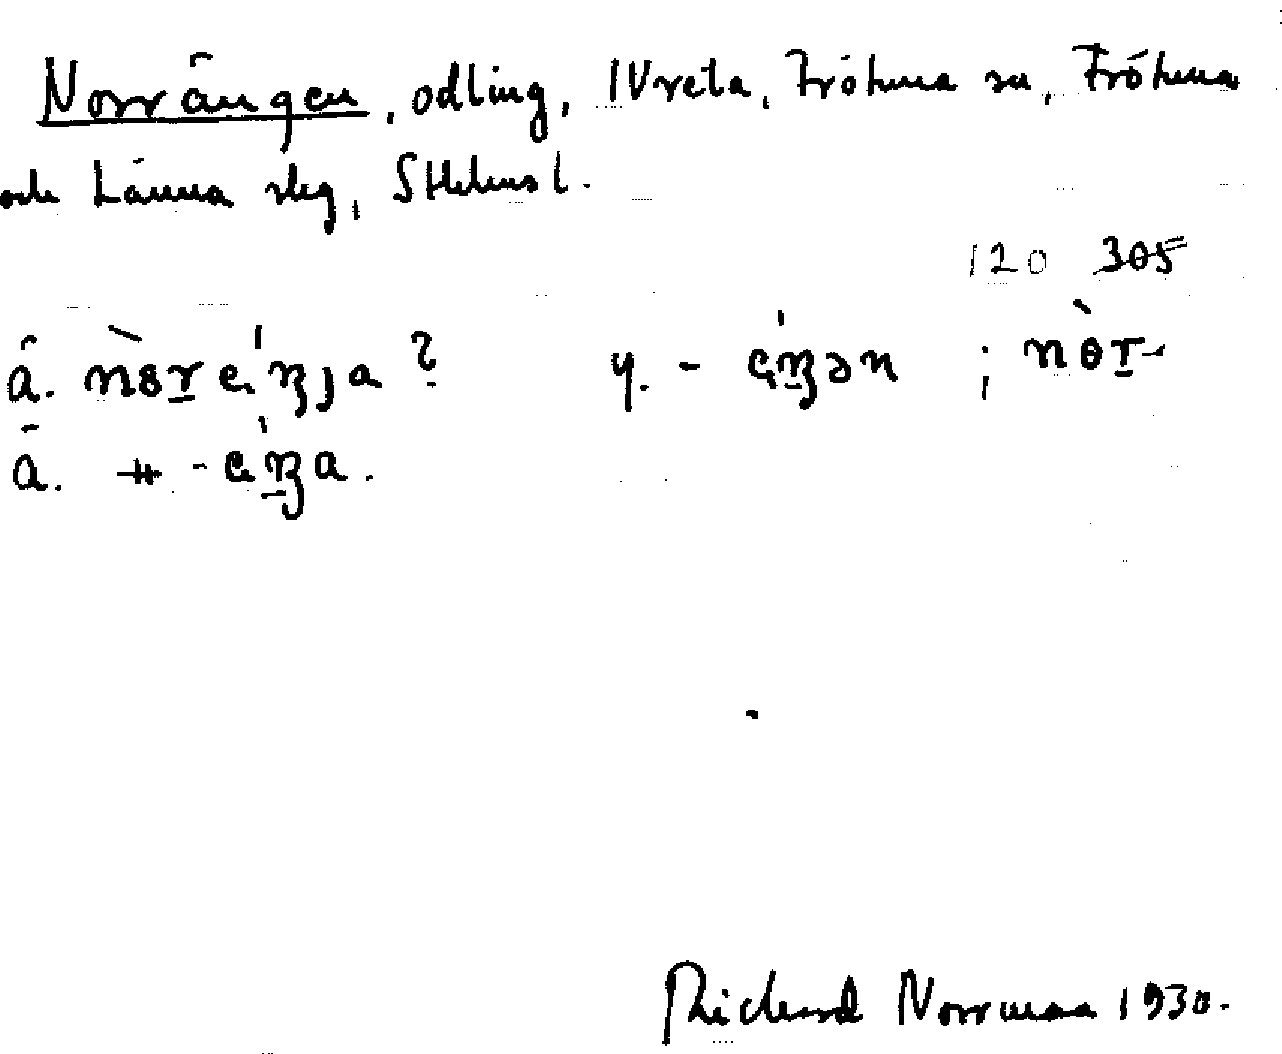 Norrängen, odling, 1 Vreta, Frötuna sn, Frötuna
och Länna slg, Sthlms l.
120 305
ä. nȯre ŋja? y. - eŋən ; nɵr-
ä. - eŋa.
Richard Norrman 1930.